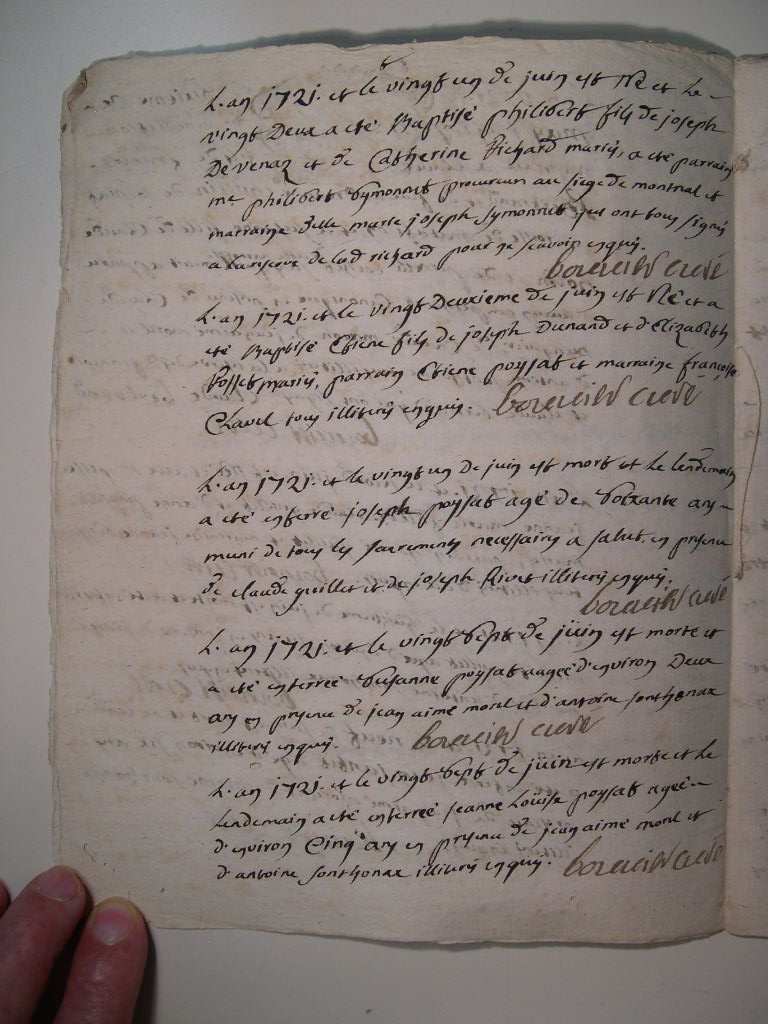 L'an 1721. et le vingt un de juin est né et le
vingt deux a eté Baptisé philibert fils de joseph
Devenaz et de Catherine Richard mariés, a eté parrain
me philibert symonnet procureur au siege de montreal et
marraine dlle marie joseph symonnet qui ont tous signés
a la reserve de lad richard pour ne scavoir enquis.
curé
L'an 1721. et le vingt Deuxieme de juin est né et a
eté Baptisé Etiene fils de joseph Dunand et d'Elizabeth
Rosset mariés, parrain Etiene poysat et marraine françoise
Clavel tous illiterés enquis. curé
L'an 1721. et le vingt un de juin est mort et le lendemain
a eté enterré joseph poysat agé de soixante ans
muni de tous les sacrements necessaires a salut, en presence
de claude guillet et de joseph Rivet illiterés enquis.
curé
L'an 1721. et le vingt sept de juin est morte et
a eté enterrée susanne poysat aagée d'environ Deux
ans en presence de jean aimé morel et d'antoine sonthonax
illiterés enquis. curé
L'an 1721. et le vingt sept de juin est morte et le
lendemain a eté enterrée jeanne Loüise poysat agée
d'environ Cinq ans en presence de jean aimé morel et
d'antoine sonthonax illiterés enquis. curé